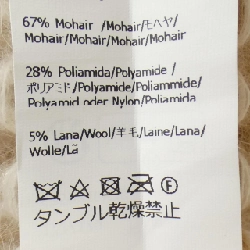 67% Mohair /Mohair/モヘヤ/
Mohair/Mohair/Mohair/Mohair
28% Poliamida/Polyamide /
ポリアミド/Polyamide/Poliammide/
Polyamid oder Nylon/Poliamida
5% Lana/Wool/羊毛/Laine/Lana/
Wolle/Lã
タンブル乾燥禁止